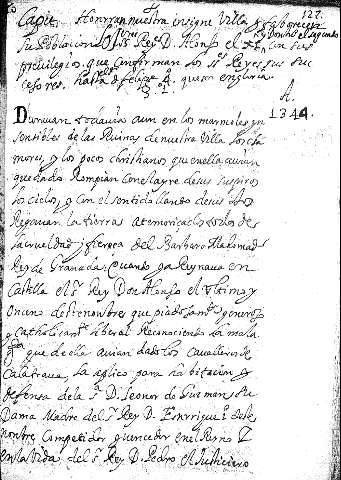 127.
Capit. Honrran nuestra insigne Villa y favorecen
su Poblacion los ss.res Reyes D. Alonso el
con sus
privilegios que confirman los ss. Reyes sus suc
cesores. hasta
A.
1344.
Duravan todavia aun en los marmoles yn
sensibles de las Ruinas de nuestra Villa los cla
mores, y los pocos christianos que en ella avian
quedado Rompian con el ayre de sus suspiros
los cielos, y con el sentido llanto de sus ojos
Regavan la tierra, atemoriçados todos de
la crueldad y fiereça del Barbaro Mahomad
Rey de Granada: Quando ya Reynava en
Castilla el s.r Rey Don Alonso el Vltimo y
onceno deste nonbre, que piadosam.te generoso
y catholicam.te liberal Reconociendo la mala
q.ta que de ella avian dado los Cavalleros de
Calatrava, la aplico para habitacion y
defensa de la s.ra D. Leonor de Guzman, su
Dama Madre del s.r Rey D. Enrrique 2. deste
nonbre Competidor y vencedor en el Reyno y
en la Vida del s.r Rey D. Pedro el Justiciero